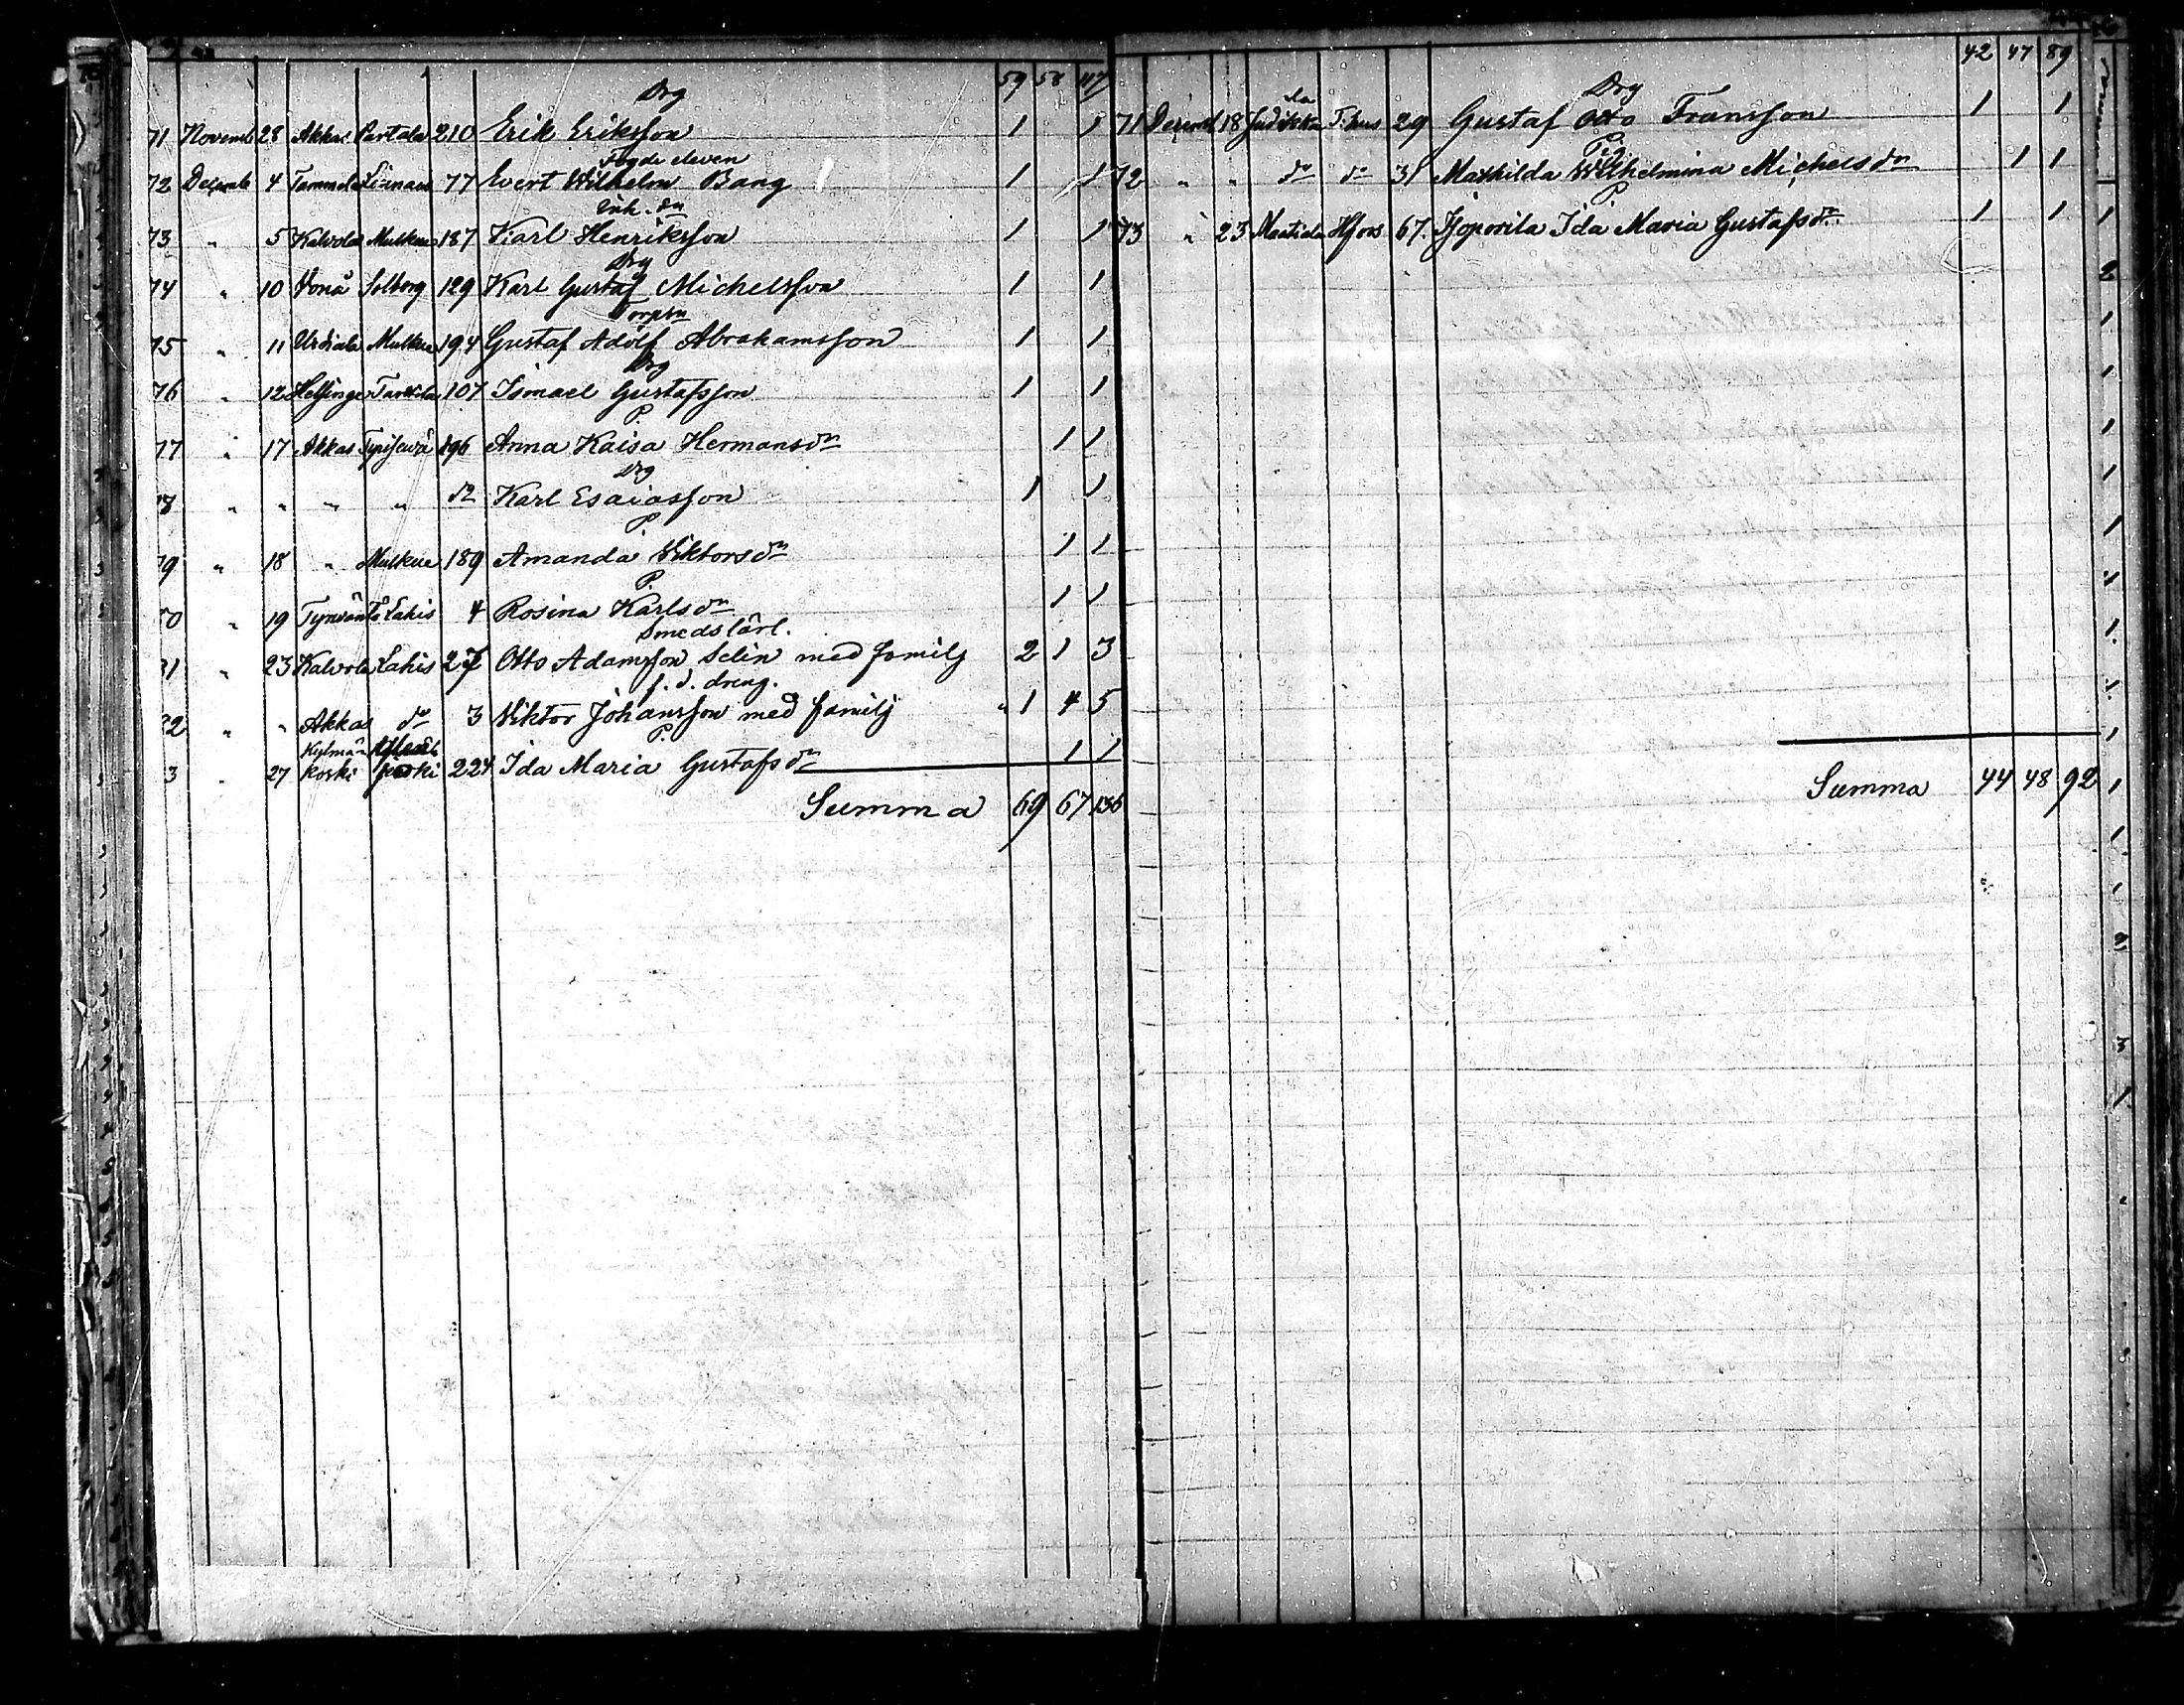 59 58 117
Drg
71 Novemb 28 Akkas Partala 210 Erik Eriksson 1 1
Fogde eleven
72 Decemb 4 Tammela Linnais 77 Evert Wilhelm Bang 1 1
Enk. sn
73 " 5 Kalvola Mulkue 187 Karl Henriksson 1 1
Drg
74 " 10 Vonå Solberg 129 Karl Gustaf Michelsson 1 1
Torpsn
75 " 11 Urdiala Mulkue 194 Gustaf Adolf Abrahamsson 1 1
Drg
76 " 12 Helsinge Tarttila 107 Ismael Gustafsson 1 1
P.
77 " 17 Akkas 196 Anna Kaisa Hermansdr 1 1
Drg
78 " " " " Karl Esaiasson 1 1
P.
79 " 18 " Mulkue 189 Amanda Viktorsdr 1 1
P.
80 " 19 Tyrväntö Lahis 4 Rosina Karlsdr 1 1
Smedslärl.
81 " 23 Kalvola Lahis 27 Otto Adamsson Selin med familj 2 1 3
f. d. dreng.
82 " " Akkas do 3 Viktor Johansson med familj 1 4 5
P.
3 " 27 Kylmä koski 224 Ida Maria Gustafsdr 1 1
Summa 69 67 136
42 47 89
Drg
71 Decemb 18 T:hus 29 Gustaf Otto Fransson 1 1
Pig
72 " " do do 31 Mathilda Wilhelmina Michelsdr 1 1
P
73 " 23 H:fors 67. Ida Maria Gustafsdr 1 1
Summa 44 48 92